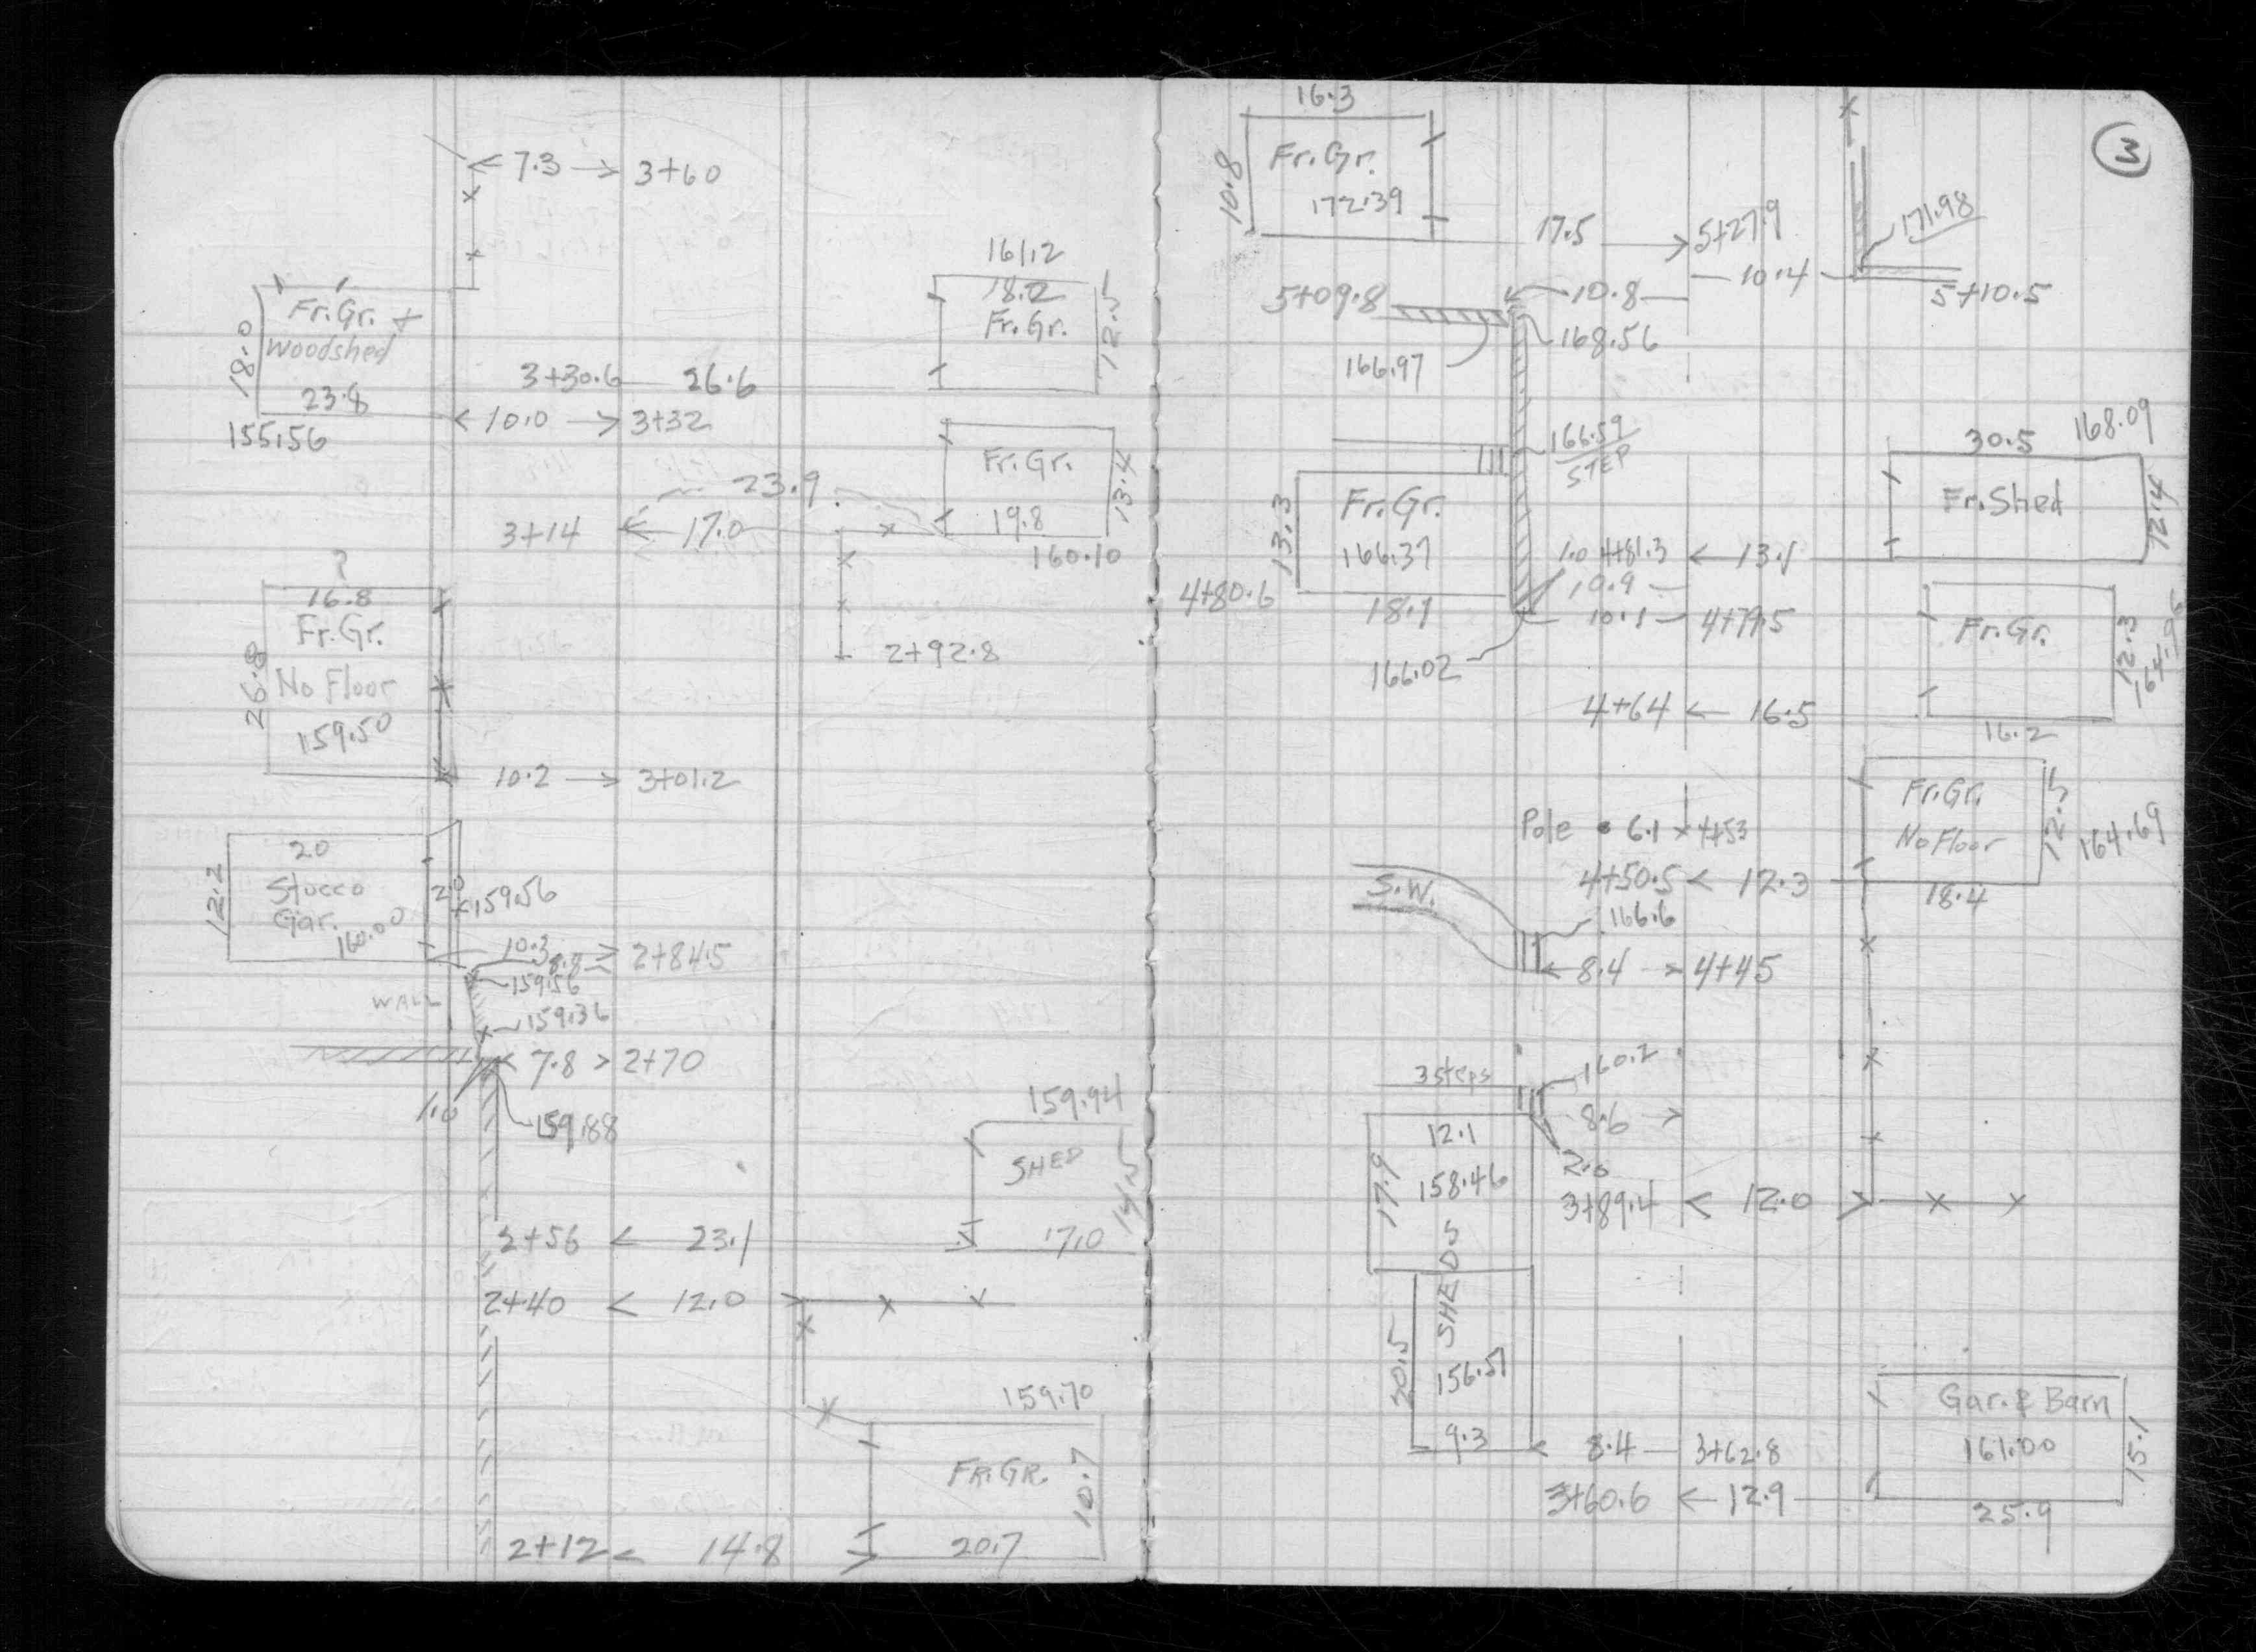 7.3 3+60
161.2
18.2
Fr.Gr.
12.5
Fr.Gr. +
Woodshed
18.0
23.8
155.56
3+30.6 26.6
10.0 3+32
Fr.Gr.
19.8
13.4
160.10
23.9
3+14 17.0
?
16.8
Fr.Gr.
No Floor
159.50
26.8
2+92.8
10.2 3+01.2
20
Stucco
Gar.
160.00
12.2
2.0
159.56
10.3
8.8
2+84.5
159.56
WALL
159.36
7.8 2+70
1.0
159.88
159.94
SHED
17.0
14.5
2+56 23.1
2+40 12.0
159.70
FR.GR.
20.7
10.7
2+12 14.8
3
16.3
Fr.Gr.
172.39
10.8
17.5 5+27.9
171.98
10.4
5+10.5
5+09.8
10.8
168.56
166.97
166.59
STEP
30.5
168.09
Fr.Shed
12.4
Fr.Gr.
166.37
13.3
18.1
4+80.6
1.0 4+81.3 13.1
10.9
10.1 4+79.5
166.02
Fr.Gr.
12.3
164.96
16.2
4+64 16.5
Fr.Gr.
No Floor
12.5
164.69
18.4
Pole 6.1 4+53
4+50.5 12.3
S.W.
166.6
8.4 4+45
3 steps
160.2
8.6
2.0
12.1
158.46
17.9
3+89.4 12.0
SHEDS
156.57
20.5
9.3
8.4 3+62.8
3+60.6 12.9
Gar. & Barn
161.00
15.1
25.9